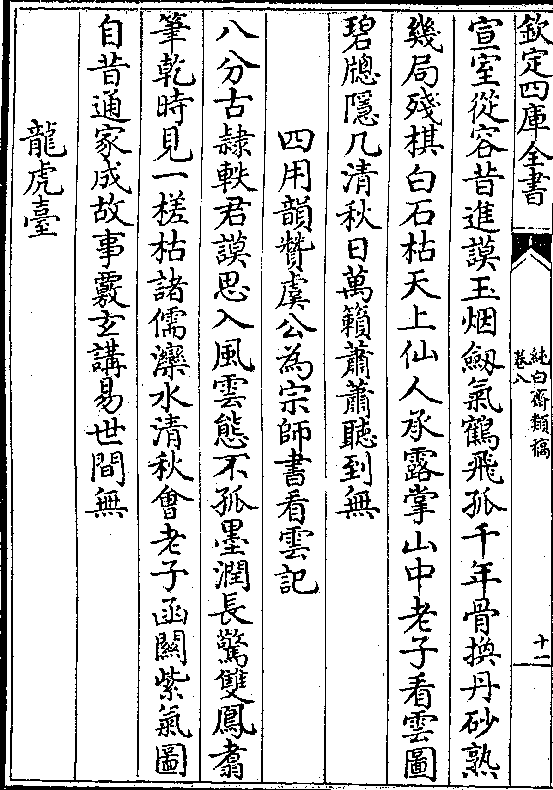 欽定四庫全書
純白齋類稿
卷八
十一
宣室從容昔進謨玉烟劒氣鶴飛孤千年骨換丹砂熟
幾局殘棋白石枯天上仙人承露掌山中老子看雲圖
碧牕隱几清秋日萬籟蕭蕭聽到無
四用韻贊虞公為宗師書看雲記
八分古隸軼君謨思入風雲態不孤墨潤長驚雙鳳翥
筆乾時見一槎枯諸儒灤水清秋會老子函關紫氣圖
自昔通家成故事覈玄講易世間無
龍虎臺